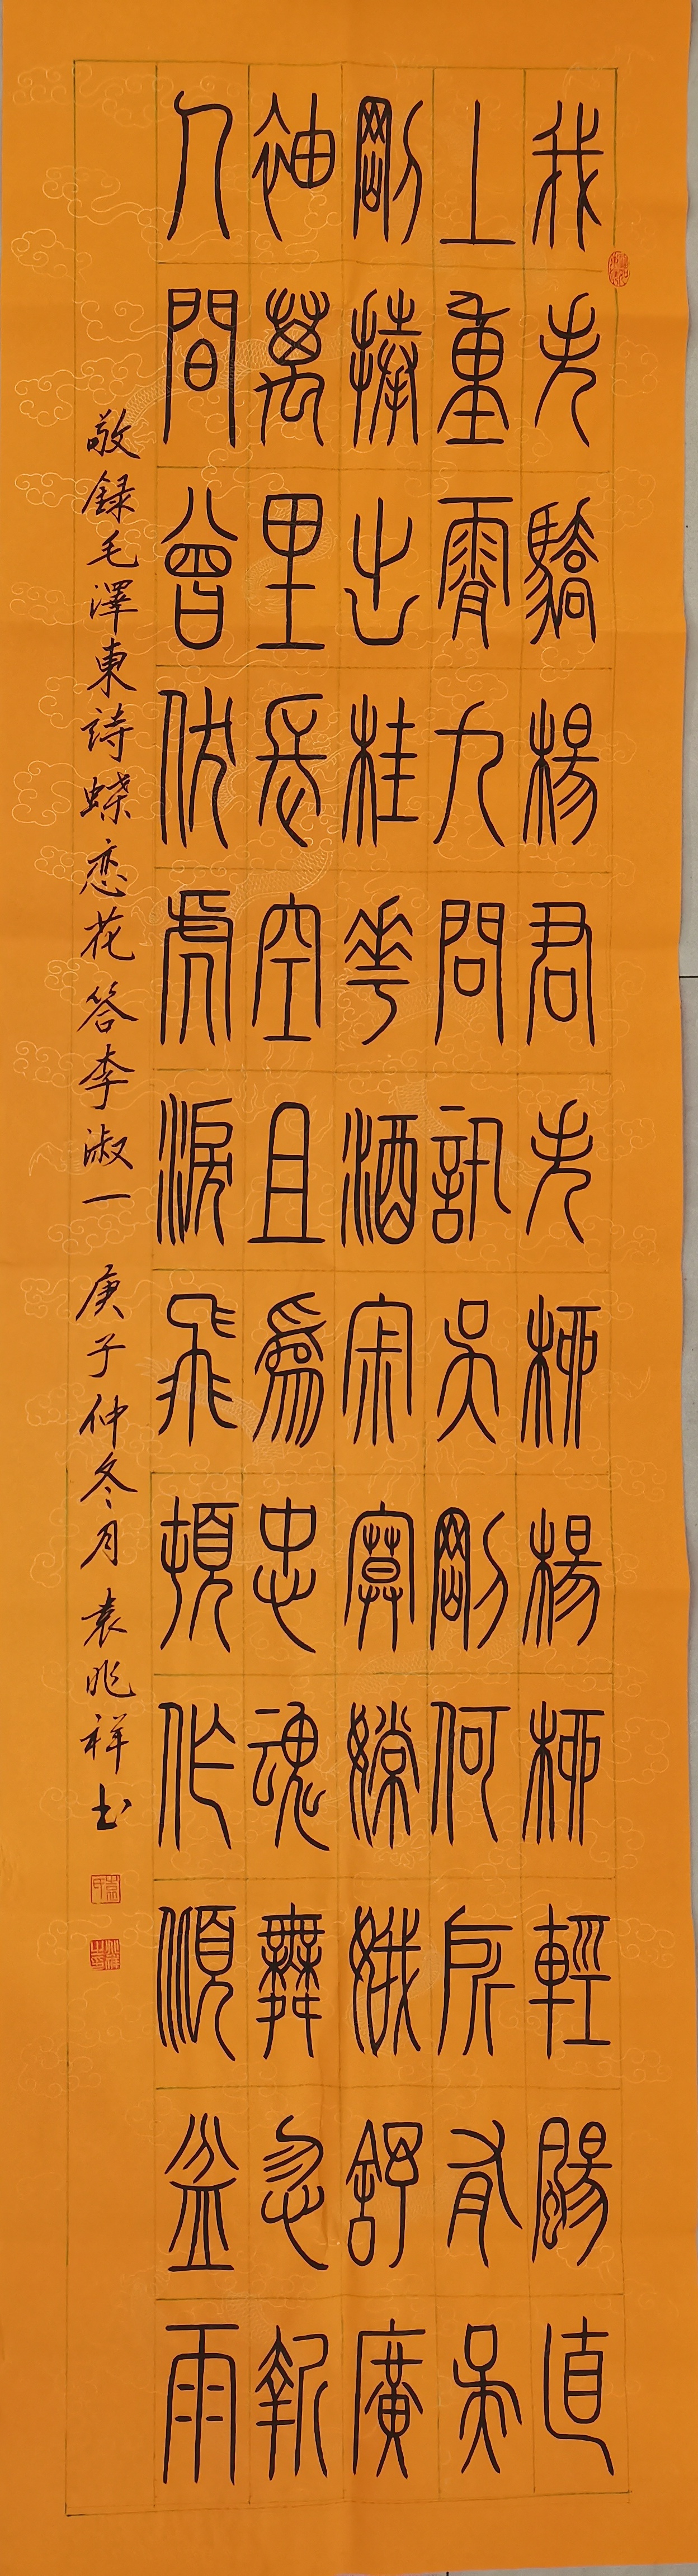 我失驕楊君失柳楊柳輕颺直
上重霄九問訊吳剛何所有吳
剛捧出桂華酒寂寞嫦娥舒廣
袖萬里長空且爲忠魂舞忽報
人間曾伏虎淚飛頓作傾盆雨
敬録毛澤東詩蝶恋花答李淑一 庚子仲冬月袁兆祥书